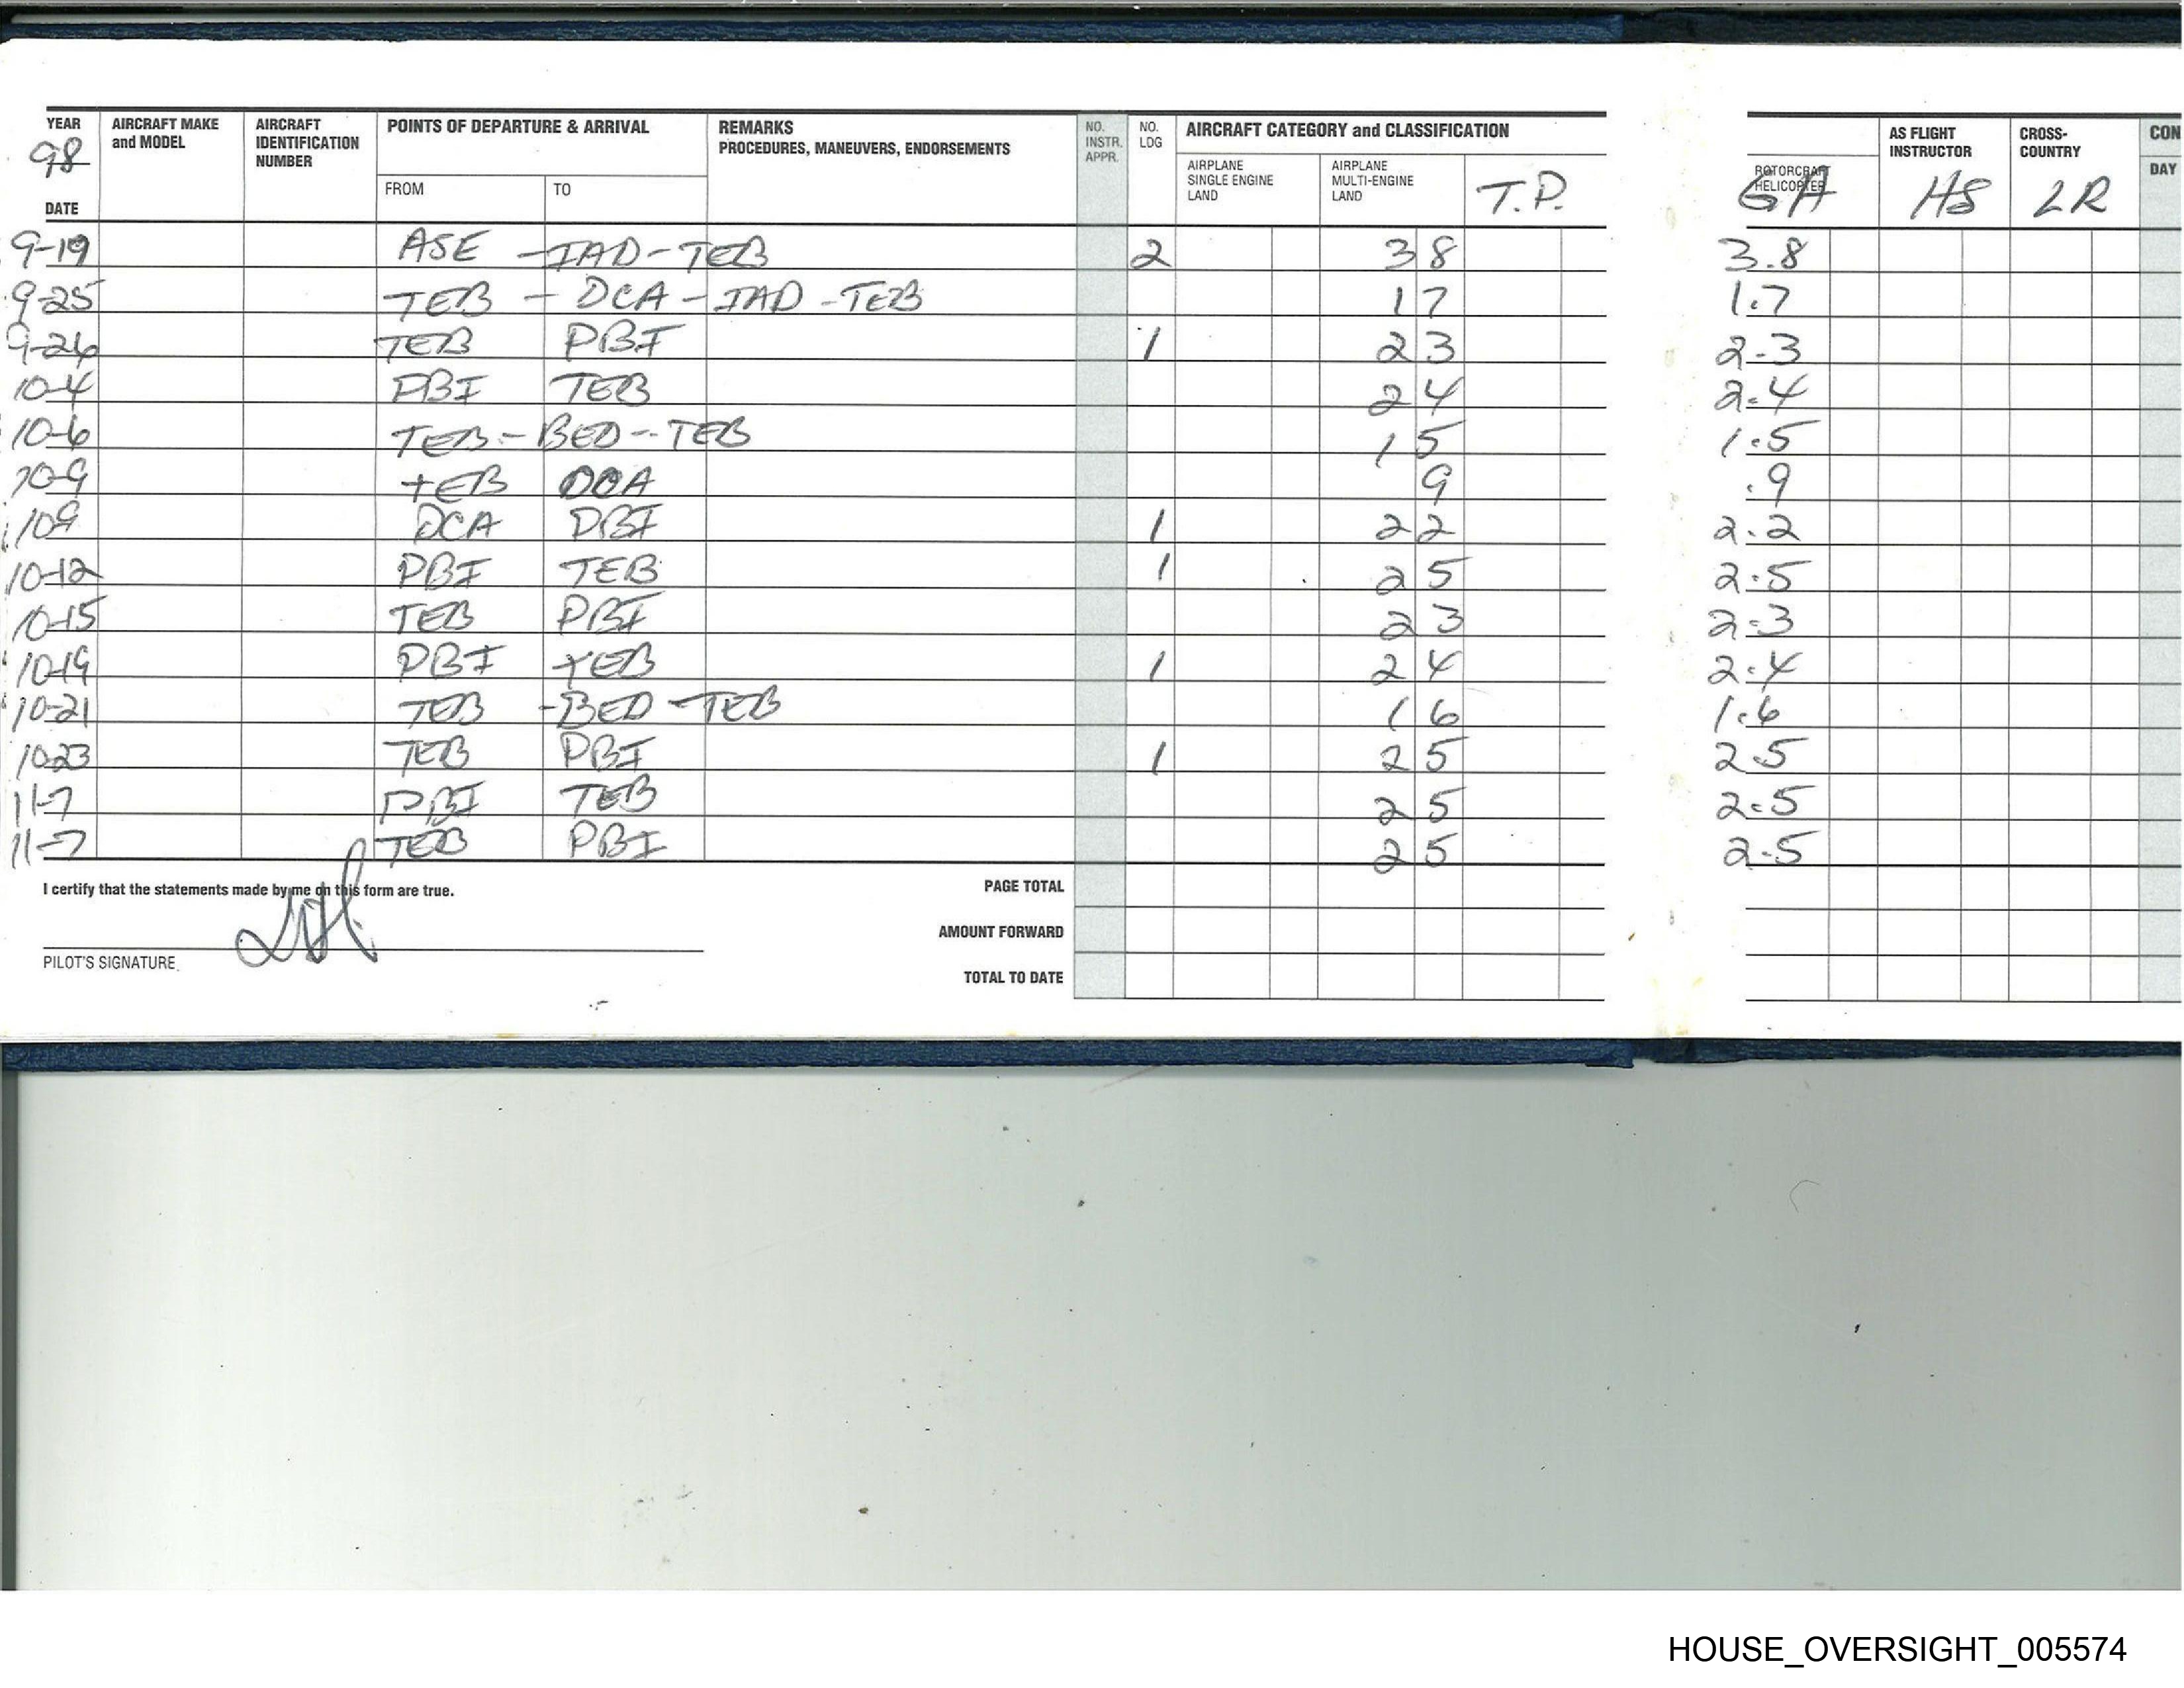 YEAR AIRCRAFT MAKE AIRCRAFT POINTS OF DEPARTURE & ARRIVAL REMARKS NO. NO. AIRCRAFT CATEGORY and CLASSIFICATION AS FLIGHT CROSS- CON
98 and MODEL IDENTIFICATION PROCEDURES, MANEUVERS, ENDORSEMENTS INSTR. LDG INSTRUCTOR COUNTRY
NUMBER APPR. AIRPLANE AIRPLANE ROTORCRAFT DAY
FROM TO SINGLE ENGINE MULTI-ENGINE T.P. HELICOPTER
DATE LAND LAND GA HS LR
9-19 ASE -IAD-TEB 2 3 8 3.8
9-25 TEB - DCA - IAD -TEB 1 7 1.7
9-26 TEB PBI 1 2 3 2-3
10-4 PBI TEB 2 4 2-4
10-6 TEB - BED - TEB 1 5 1.5
10-9 TEB DCA 9 .9
109 DCA PBI 1 2 2 2.2
10-12 PBI TEB 1 2 5 2.5
10-15 TEB PBI 2 3 2-3
10-19 PBI TEB 1 2 4 2.4
10-21 TEB -BED -TEB 1 6 1.6
10-23 TEB PBI 1 2 5 2.5
11-7 PBI TEB 2 5 2.5
11-7 TEB PBI 2 5 2-5
I certify that the statements made by me on this form are true. PAGE TOTAL
AMOUNT FORWARD
PILOT'S SIGNATURE TOTAL TO DATE
HOUSE_OVERSIGHT_005574